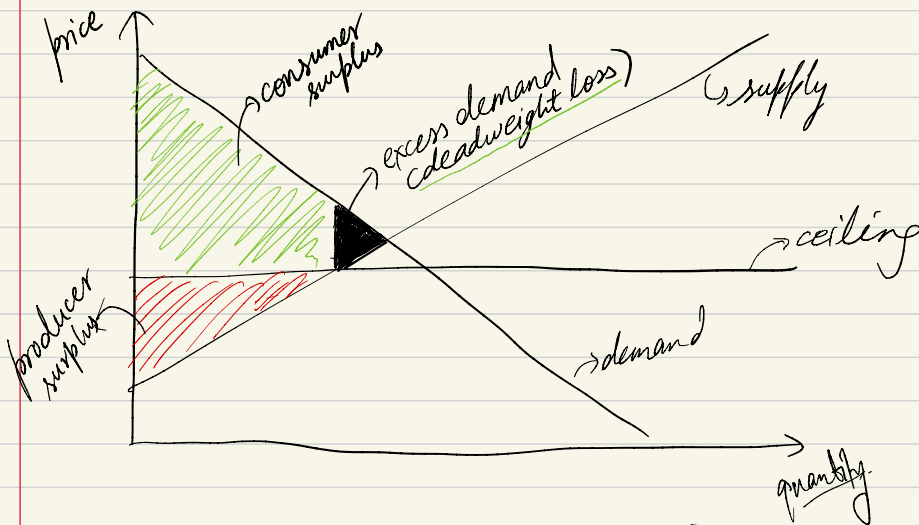 price
consumer
surplus
excess demand
(deadweight loss)
supply
ceiling
producer
surplus
demand
quantity